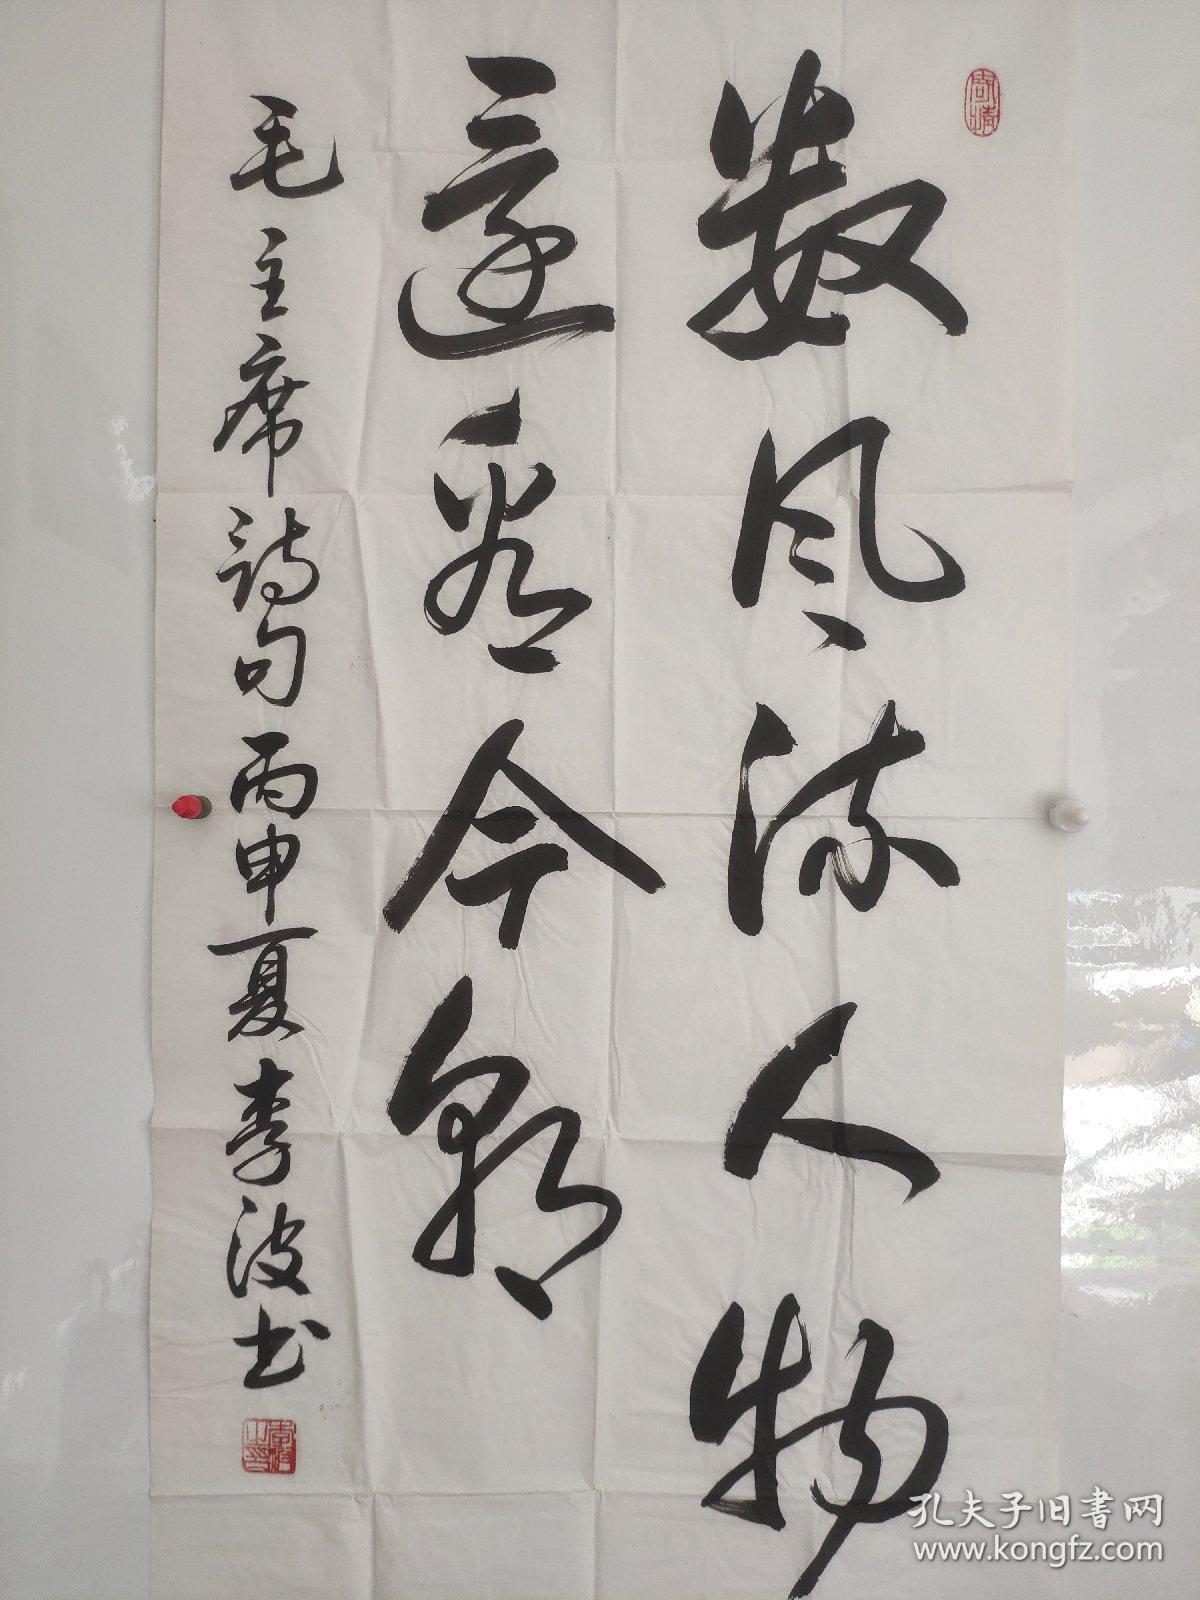 数风流人物
还看今朝
毛主席詩句丙申夏李波书
李波之印
孔夫子旧書网
www.kongfz.com